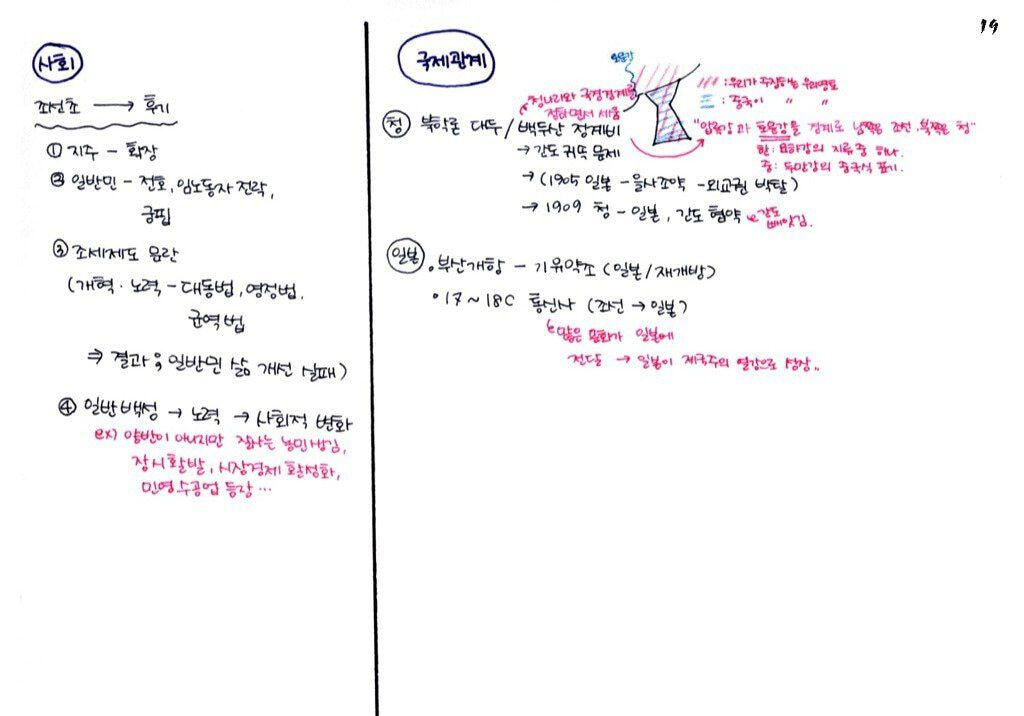 19
사회
조선초 → 후기
① 지주 - 확장
② 일반민 - 전호, 임노동자 전락,
궁핍
③ 조세제도 문란
(개혁·노력 - 대동법, 영정법,
균역법
⇒ 결과; 일반민 삶 개선 실패)
④ 일반백성 → 노력 → 사회적 변화
ex) 양반이 아니지만 잘사는 농민생김,
장시활발, 시장경제 활성화,
민영수공업 등장...
국제관계
토문강
청나라와 국경경계를
정하면서 세움
///: 우리가 주장하는 우리영토
三: 중국이 〃 〃
청 북학론 대두/백두산 정계비
"압록강과 토문강을 경계로 남쪽은 조선, 북쪽은 청"
한: 송화강의 지류 중 하나.
중: 두만강의 중국식 표기.
→ 간도 귀속 문제
→ (1905 일본 - 을사조약 - 외교권 박탈)
→ 1909 청 - 일본, 간도 협약
간도
빼앗김.
일본 • 부산개항 - 기유약조 (일본/재개방)
• 17~18C 통신사 (조선 → 일본)
많은 문화가 일본에
전달 → 일본이 제국주의 열강으로 성장..